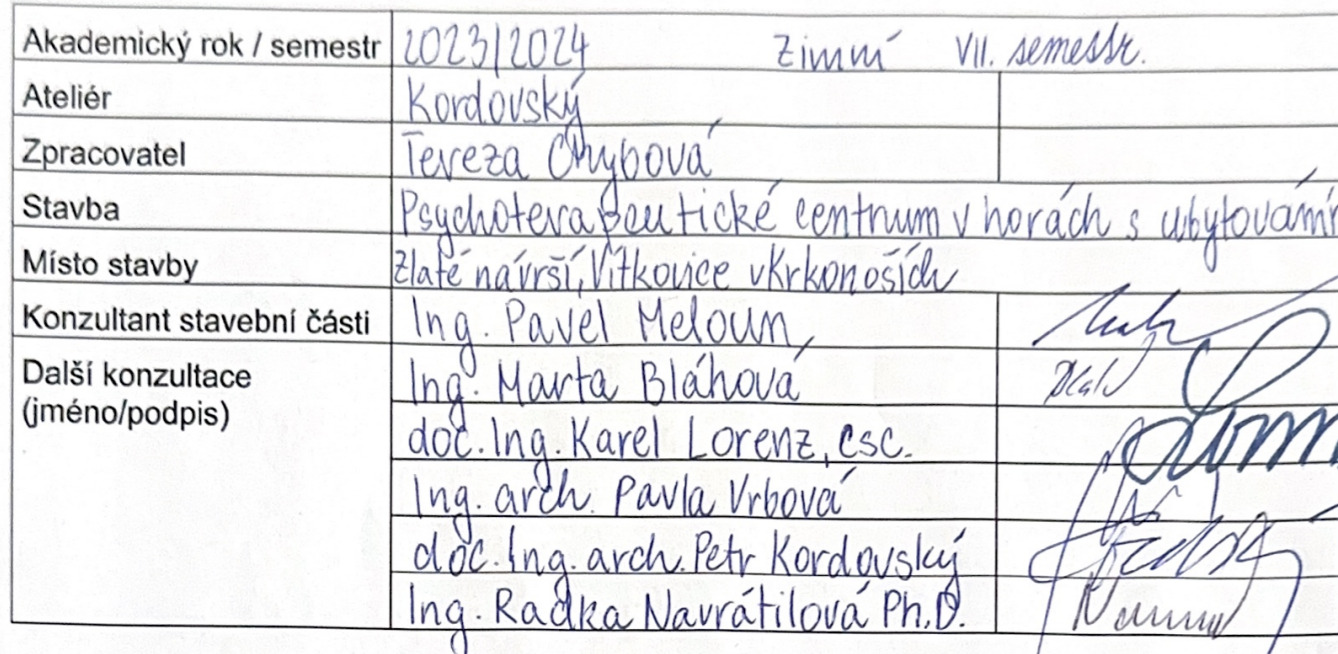 Akademický rok / semestr 2023/2024 Zimní VII. semestr.
Ateliér Kordovský
Zpracovatel Tereza Chybová
Stavba Psychoterapeutické centrum v horách s ubytováním
Místo stavby Zlaté návrší, Vítkovice v Krkonoších
Konzultant stavební části Ing. Pavel Meloun,
Další konzultace Ing. Marta Bláhová
(jméno/podpis)
doc. Ing. Karel Lorenz, csc.
Ing. arch. Pavla Vrbová
doc. Ing. arch. Petr Kordovský
Ing. Radka Navrátilová Ph.D.